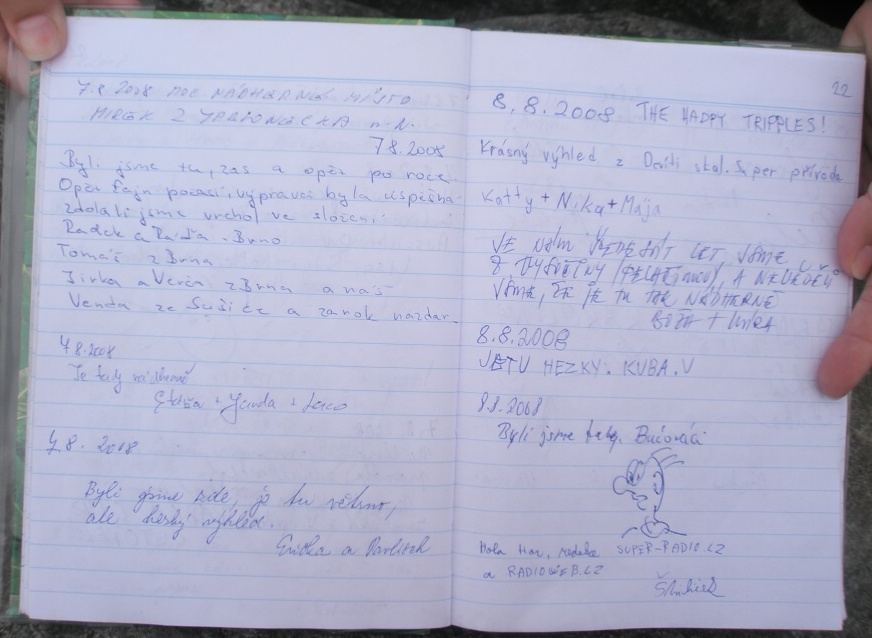 7.8.2008 MOC NÁDHERNÉ MÍSTO
MIREK Z n.N.
7.8.2008
Byli jsme tu, zas a opět po roce.
Opět fajn počasí, výprava byla úspěšná
zdolali jsme vrchol ve složení:
Radek a Páďa - Brno
Tomáš z Brna
Jirka a Verča z Brna a náš
Venda ze Sušice a zarok nazdar.
7.8.2008
Je tady nádherně
+ Jenda + Laco
7.8. 2008
Byli jsme zde, je tu větrno,
ale hezký výhled.
a Pavlítek
22
8.8.2008 THE HAPPY TRIPPLES!
Krásný výhled z Deviti skal. Super příroda
Katty + Nika + Mája
VE NÁM ŠEDESÁT LET, JSME
8. A NEVĚDĚLI
JSME, ŽE JE TU TAK NÁDHERNĚ
+ MÍRA
8.8.2008
JE TU HEZKY. KUBA.V
8.8.2008
Byli jsme tady. Bučováci
Hola Hou, SUPER-RADIO.CZ
a RADIOWEB.CZ